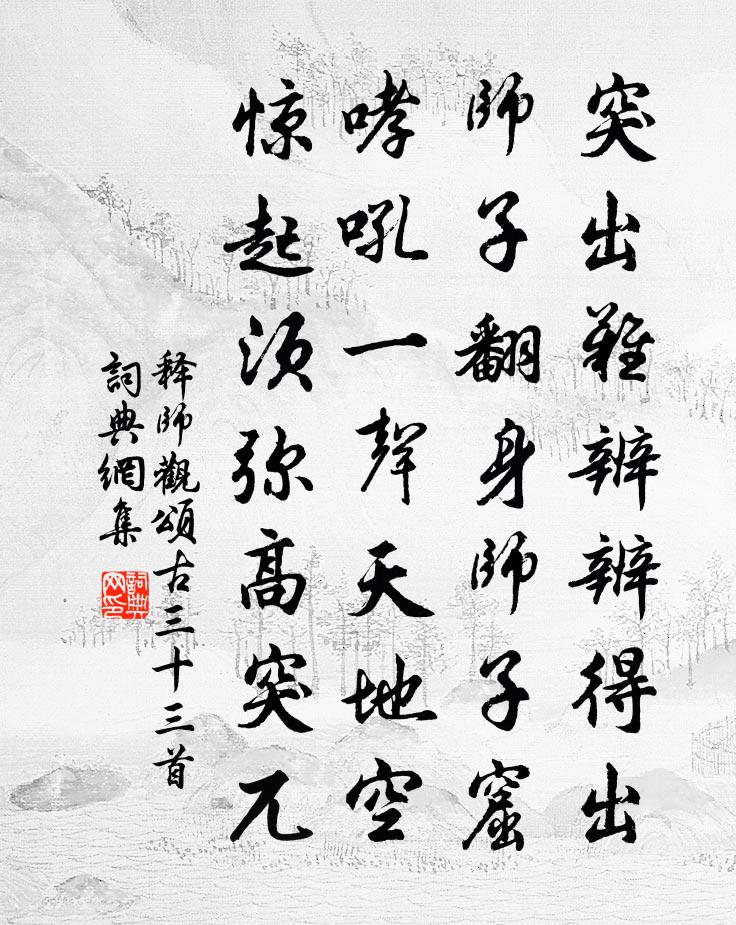 突出難辨辨得出
師子翻身師子窟
哮吼一聲天地空
惊起须弥高突兀
释師觀頌古三十三首
詞典網集
詞典网印